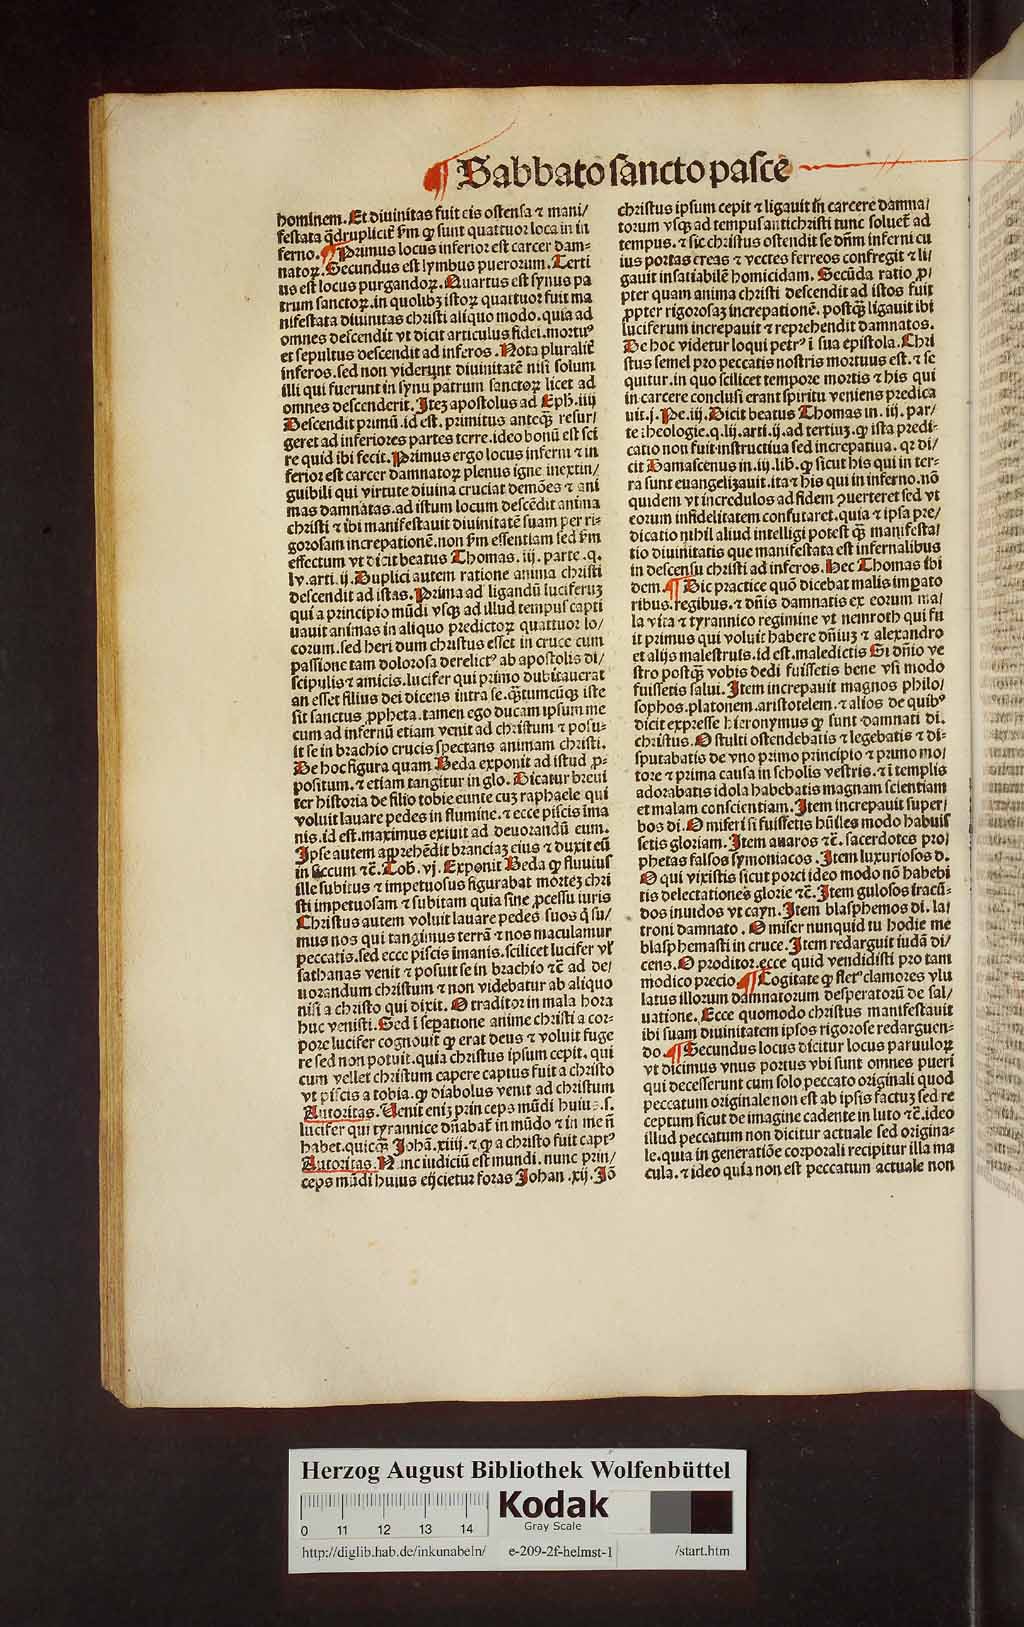 ¶ Sabbato sancto pasce
hominem. Et diuinitas fuit eis ostensa ⁊ mani/
festata q̄druplicit̄ ẜm ꝙ sunt quattuor loca in in
ferno. ¶ Primus locus inferior est carcer dam=
natoꝝ. Secundus est lymbus puerorum. Terti
us est locus purgandoꝝ. Quartus est synus pa
trum sanctoꝝ. in quolibꝫ istoꝝ quattuor fuit ma
nifestata diuinitas christi aliquo modo. quia ad
omnes descendit vt dicit articulus fidei. mortuꝰ
et sepultus descendit ad inferos. Nota pluralit̄
inferos. sed non viderunt diuinitatē nisi solum
illi qui fuerunt in synu patrum sanctoꝝ licet ad
omnes descenderit. Iteꝫ apostolus ad Eph. iiij
Descendit primū. id est. primitus anteqꝫ̄ resur/
geret ad inferiores partes terre. ideo bonū est sci
re quid ibi fecit. Primus ergo locus inferni ⁊ in
ferior est carcer damnatoꝝ plenus igne inextin/
guibili qui virtute diuina cruciat demōes ⁊ ani
mas damnatas. ad istum locum descēdit anima
christi ⁊ ibi manifestauit diuinitatē suam per ri=
gorosam increpationē. non ẜm essentiam sed ẜm
effectum vt dicit beatus Thomas. iij. parte. q.
lv. arti. ij. Duplici autem ratione anima christi
descendit ad istas. Prima ad ligandū luciferuꝫ
qui a principio mūdi vsqꝫ ad illud tempus capti
uauit animas in aliquo predictoꝝ quattuor lo/
corum. sed heri dum christus esset in cruce cum
passione tam dolorosa derelictꝰ ab apostolis di/
scipulis ⁊ amicis. lucifer qui primo dubitauerat
an esset filius dei dicens intra se. qꝫ̄tumcūqꝫ iste
sit sanctus ꝓpheta. tamen ego ducam ipsum me
cum ad infernū etiam venit ad christum ⁊ posu=
it se in brachio crucis spectans animam christi.
De hoc figura quam Beda exponit ad istud ꝓ=
positum. ⁊ etiam tangitur in glo. Dicatur breui
ter historia de filio tobie eunte cuꝫ raphaele qui
voluit lauare pedes in flumine. ⁊ ecce piscis īma
nis. id est. maximus exiuit ad deuorandū eum.
Ipse autem apprehēdit branciaꝫ eius ⁊ duxit eū
in siccum ⁊c̄. Tob. vj. Exponit Beda ꝙ fluuius
ille subitus ⁊ impetuosus figurabat morteꝫ chri
sti impetuosam ⁊ subitam quia sine ꝓcessu iuris
Christus autem voluit lauare pedes suos q̇ su/
mus nos qui tangimus terrā ⁊ nos maculamur
peccatis. sed ecce piscis īmanis. scilicet lucifer vl̓
sathanas venit ⁊ posuit se in brachio ⁊c̄ ad de/
uorandum christum ⁊ non videbatur ab aliquo
nisi a christo qui dixit. O traditor in mala hora
huc venisti. Sed ī sepatione anime christi a cor=
pore lucifer cognouit ꝙ erat deus ⁊ voluit fuge
re sed non potuit. quia christus ipsum cepit. qui
cum vellet christum capere captus fuit a christo
vt piscis a tobia. ꝙ diabolus venit ad christum
Autoritas. Uenit eniꝫ princeps mūdi huius. s.
lucifer qui tyrannice dn̄abat̄ in mūdo ⁊ in me n̄
habet. quicqꝫ̄ Johā. xiiij. ⁊ ꝙ a christo fuit captꝰ
Autoritas. Nunc iudiciū est mundi. nunc prin/
ceps mūdi huius eijcietur foras Johan. xij. Jō
christus ipsum cepit ⁊ ligauit in carcere damna/
torum vsqꝫ ad tempus antichristi tunc soluet̄ ad
tempus. ⁊ sic christus ostendit se dn̄m inferni cu
ius portas ereas ⁊ vectes ferreos confregit ⁊ li/
gauit insatiabilē homicidam. Secūda ratio ꝓ/
pter quam anima christi descendit ad istos fuit
ꝓpter rigorosaꝫ increpationē. postqꝫ̄ ligauit ibi
luciferum increpauit ⁊ reprehendit damnatos.
De hoc videtur loqui petrꝰ ī sua epistola. Chri
stus semel pro peccatis nostris mortuus est. ⁊ se
quitur. in quo scilicet tempore mortis ⁊ his qui
in carcere conclusi erant spiritu veniens predica
uit. j. Pe. iij. Dicit beatus Thomas in. iij. par/
te theologie. q. lij. arti. ij. ad tertiuꝫ. ꝙ ista predi=
catio non fuit instructiua sed increpatiua. qꝛ di/
cit Damascenus in. iij. lib. ꝙ sicut his qui in ter=
ra sunt euangelizauit. ita ⁊ his qui in inferno. nō
quidem vt incredulos ad fidem ꝯuerteret sed vt
eorum infidelitatem confutaret. quia ⁊ ipsa pre/
dicatio nihil aliud intelligi potest qꝫ̄ manifesta/
tio diuinitatis que manifestata est infernalibus
in descensu christi ad inferos. Hec Thomas ibi
dem. ¶ Dic practice quō dicebat malis impato
ribus. regibus. ⁊ dn̄is damnatis ex eorum ma/
la vita ⁊ tyrannico regimine vt nemroth qui fu
it primus qui voluit habere dn̄iuꝫ ⁊ alexandro
et alijs malestruis. id est. maledictis Si dn̄io ve
stro postqꝫ̄ vobis dedi fuissetis bene vsi modo
fuissetis salui. Item increpauit magnos philo/
sophos. platonem. aristotelem. ⁊ alios de quibꝰ
dicit expresse hieronymus ꝙ sunt damnati di.
christus. O stulti ostendebatis ⁊ legebatis ⁊ di=
sputabatis de vno primo principio ⁊ primo mo/
tore ⁊ prima causa in scholis vestris. ⁊ ī templis
adorabatis idola habebatis magnam scientiam
et malam conscientiam. Item increpauit super/
bos di. O miseri si fuissetis hūiles modo habuis
setis gloriam. Item auaros ⁊c̄. sacerdotes pro/
phetas falsos symoniacos. Item luxuriosos d.
O qui vixistis sicut porci ideo modo nō habebi
tis delectationes glorie ⁊c̄. Item gulosos iracū=
dos inuidos vt cayn. Item blasphemos di. la/
troni damnato. O miser nunquid tu hodie me
blasphemasti in cruce. Item redarguit iudā di/
cens. O proditor. ecce quid vendidisti pro tam
modico precio. ¶ Cogitate ꝙ fletꝰ clamores vlu
latus illorum damnatorum desperatorū de sal/
uatione. Ecce quomodo christus manifestauit
ibi suam diuinitatem ipsos rigorose redarguen=
do. ¶ Secundus locus dicitur locus paruuloꝝ
vt dicimus vnus portus vbi sunt omnes pueri
qui decesserunt cum solo peccato originali quod
peccatum originale non est ab ipsis factuꝫ sed re
ceptum sicut de imagine cadente in luto ⁊c̄. ideo
illud peccatum non dicitur actuale sed origina=
le. quia in generatiōe corporali recipitur illa ma
cula. ⁊ ideo quia non est peccatum actuale non
Herzog August Bibliothek Wolfenbüttel
0 11 12 13 14
Kodak
Gray Scale
http://diglib.hab.de/inkunabeln/ e-209-2f-helmst-1 /start.htm